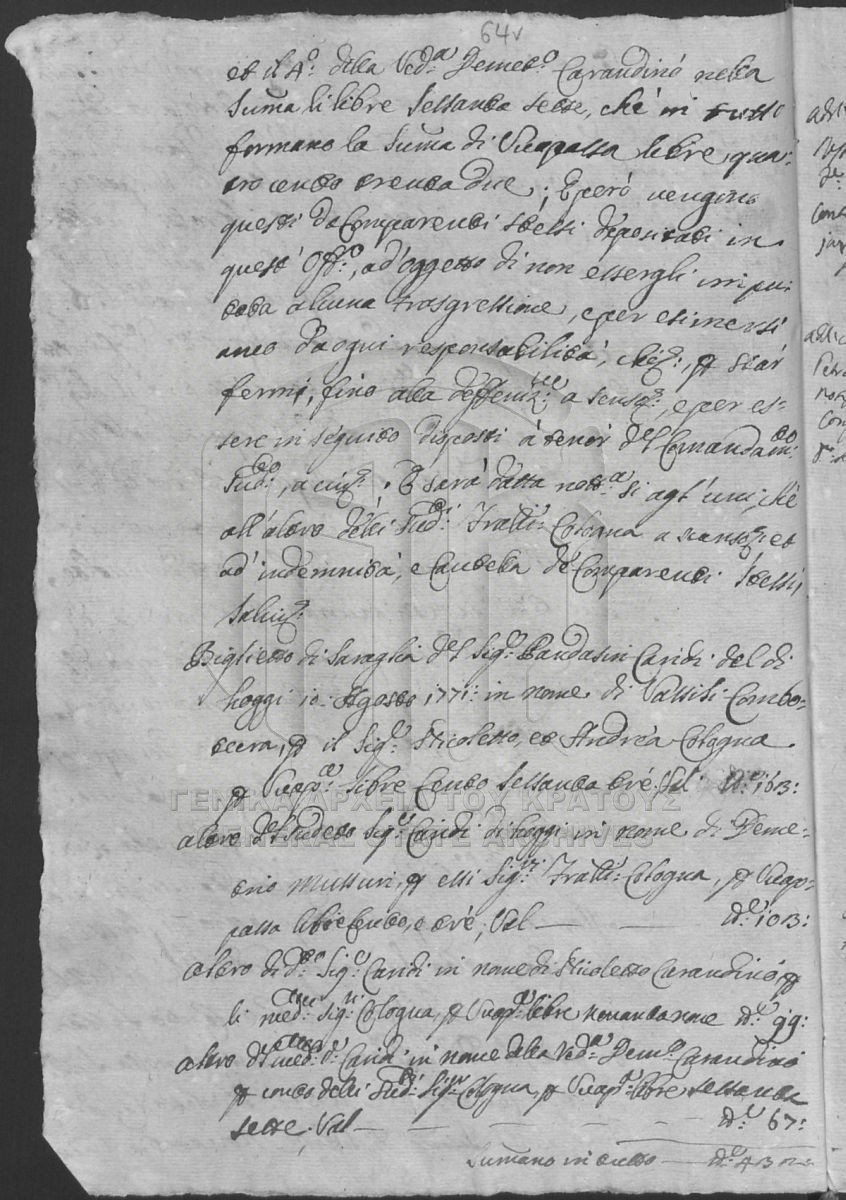 64v
et il 4º della Vedª Demetº Carandinò nella
Suma di libre Sessanta sette, chè in tutto
formano la suma di Uvapassa libre qua-
trocento trenta due; E però vengono
questi da Comparenti stessi depositati in
quest' Offº, ad' oggetto di non essergli impu-
tata alcuna trasgressione, e per esimersi
anco da ogni responsabilità, p star
fermi, fino alla a sensoz, e per es-
sere in seguito disposti à tenor del Comandamto
sudto, a cui. E sarà datta nottª si agl' uni, chè
all' altro delli sudti Fratti Cologna a et
ad' indemnità, e Cautella de Comparenti stessi,
Salvis
Biglietto di Saraglia del Sigr Pandasin Caridi del di
hoggi 10 Agosto 1771: in nome di Vassili Combo-
tecra, p il Sigr Nicoletto, et Andrea Cologna
p Uvapª libre Cento Sessanta trè. Val dtº 163:
altro del sudetto Sigr Caridi di hoggi in nome di Deme-
trio Mussuri, p essi Sigri Fratti Cologna, p Uvap-
passa libre Cento, e trè; Val — — dtº 103:
altro di dto Sigr Caridi in nome di Nicoletto Carandinò, p
li medmi Sigri Cologna, p Uvapª libre novantanove dtº 99:
altro del medmo Sr Caridi in nome della Vedª Demº Carandinò
p conto delli sudti Sigri Cologna, p Uvapª libre sessanta
sette. Val — — — — dtº 67:
Sumano in tutto — dtº 432:
ΓΕΝΙΚΑ ΑΡΧΕΙΑ ΤΟΥ ΚΡΑΤΟΥΣ
GENERAL STATE ARCHIVES